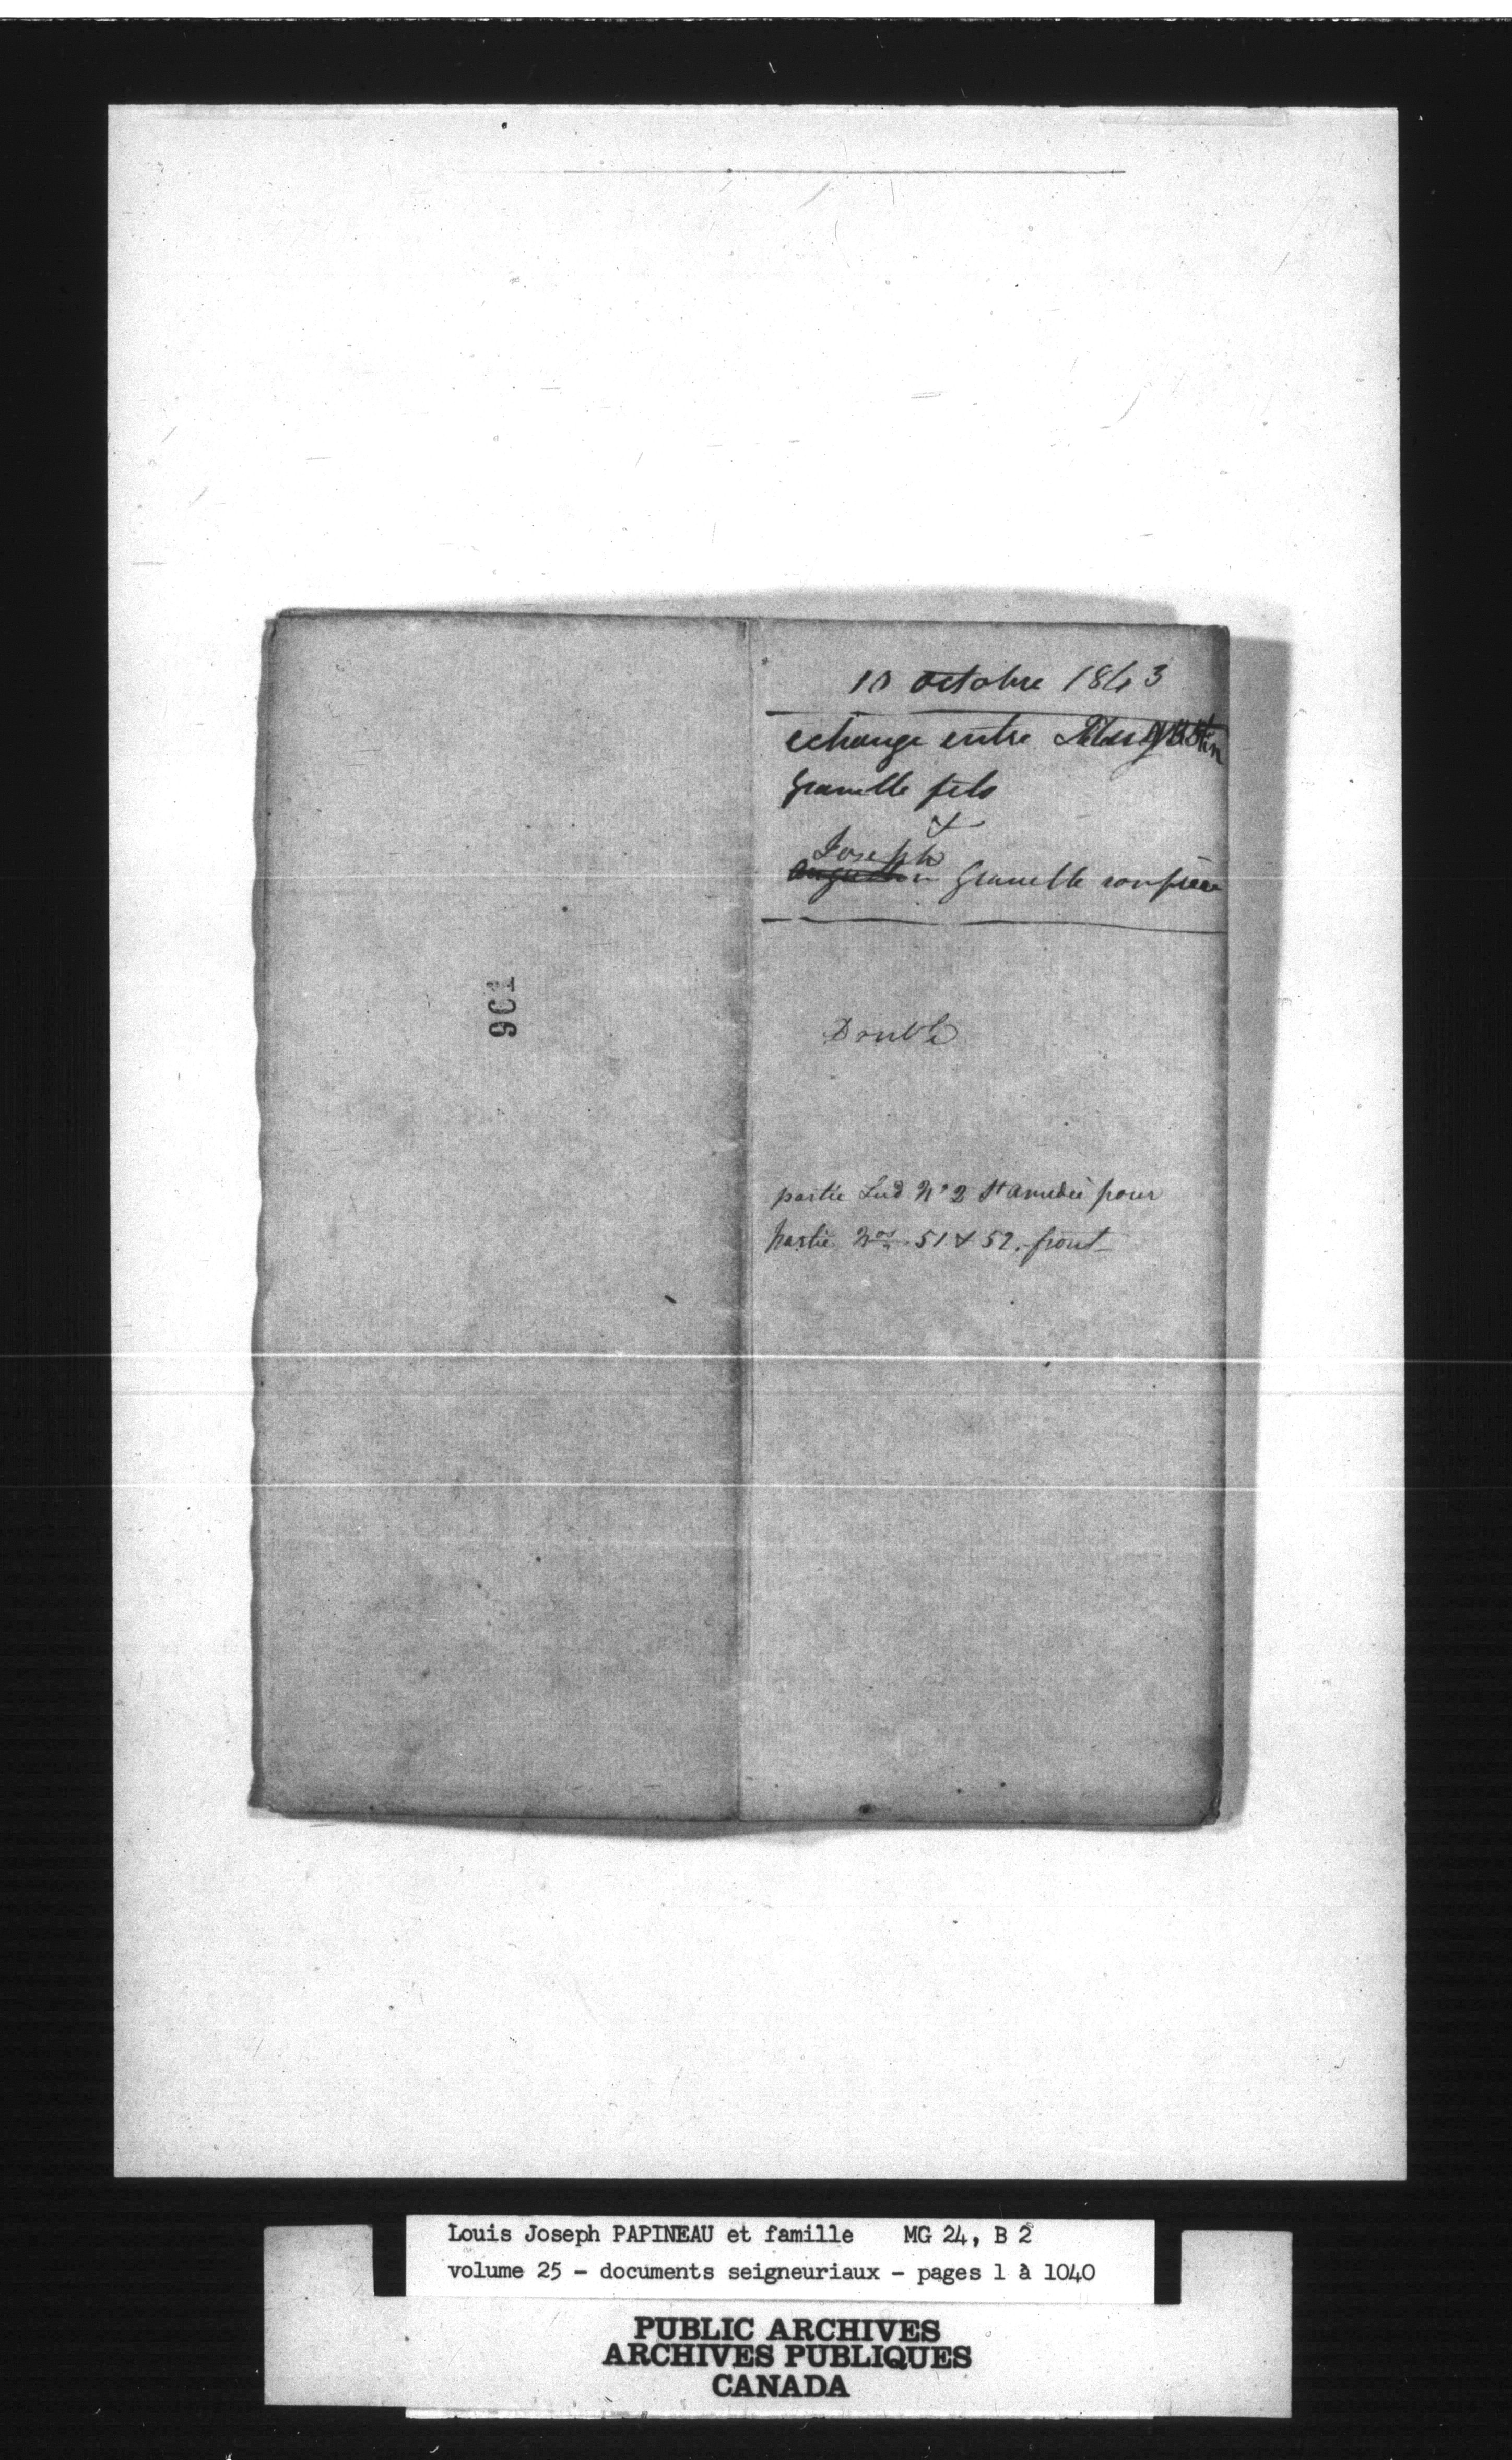 10 octobre 1843
echange entre
Gravelle fils
&
Joseph
Augustin Gravelle son frère
901
Double
partie Sud N° 2 St Amédée pour
partie Nos 51 & 52. front
Louis Joseph PAPINEAU et famille MG 24, B 2
volume 25 - documents seigneuriaux - pages 1 à 1040
PUBLIC ARCHIVES
ARCHIVES PUBLIQUES
CANADA